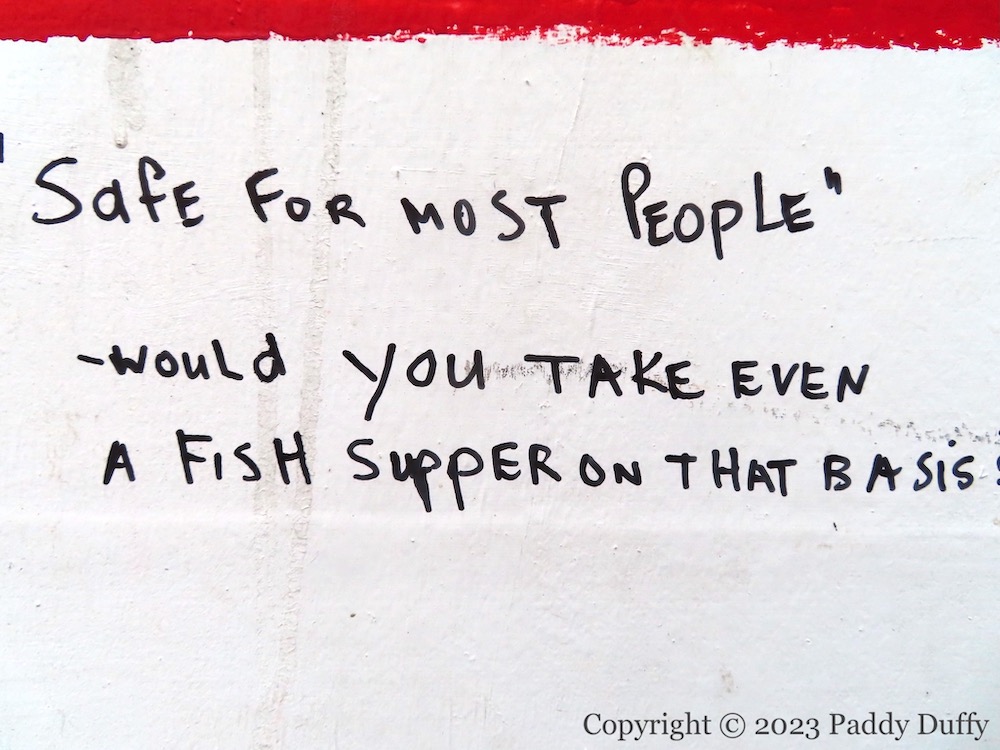 "Safe FOR MOST PEOPLE"
-WOULD YOU TAKE EVEN
A FISH SUPPER ON THAT BASIS
Copyright © 2023 Paddy Duffy